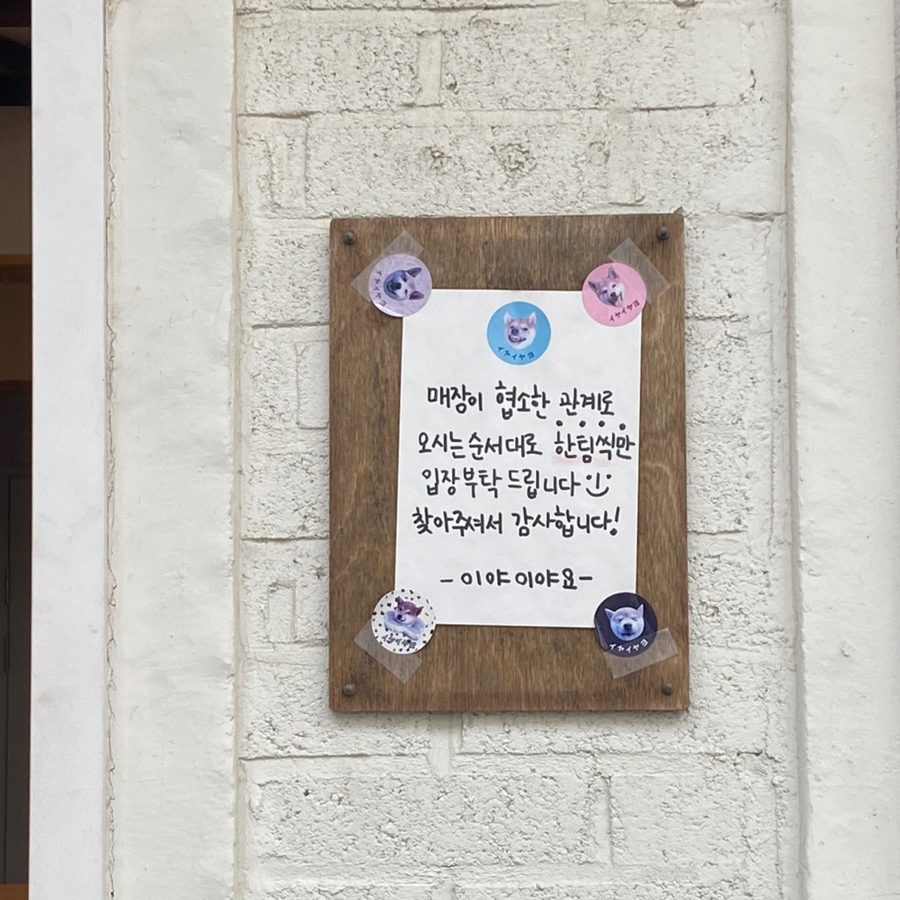 イヤイヤヨ
イヤイヤヨ
イヤイヤヨ
매장이 협소한 관계로
오시는 순서대로 한팀씩만
입장 부탁 드립니다
찾아주셔서 감사합니다!
- 이야이야요 -
イヤイヤヨ
イヤイヤヨ